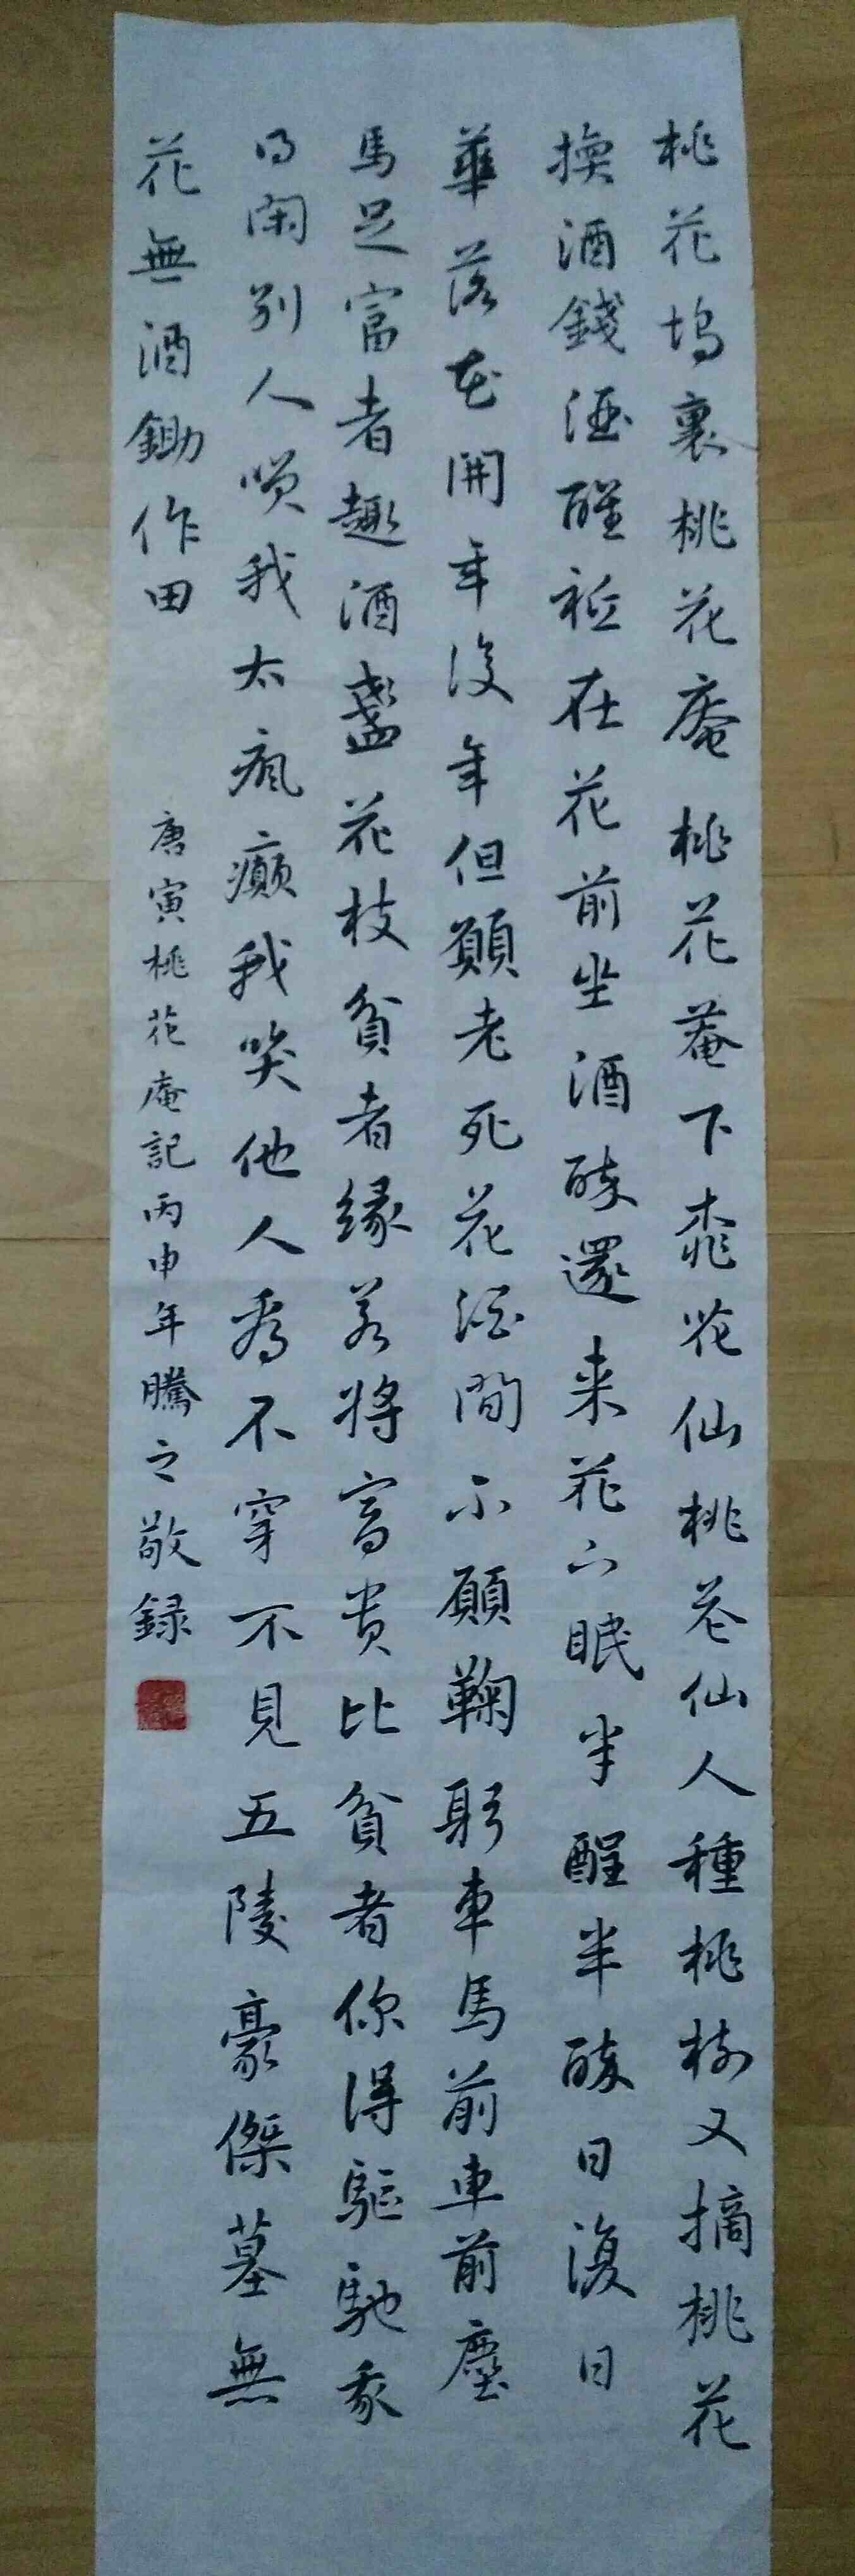 桃花塢裏桃花庵桃花菴下桃花仙桃花仙人種桃樹又摘桃花
換酒錢酒醒衹在花前坐酒醉還来花下眠半醒半醉日復日
華落花開年復年但願老死花酒間不願鞠躬車馬前車前塵
馬足富者趣酒盞花枝貧者緣若將富贵比貧者你得驅馳我
得閑别人笑我太瘋癲我笑他人看不穿不見五陵豪傑墓無
花無酒鋤作田
唐寅桃花庵記丙申年騰之敬録